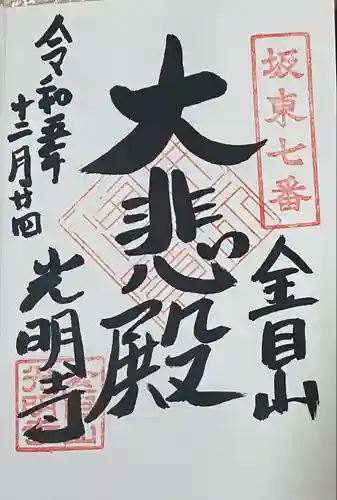 坂東七番
金目山
大悲殿
令和五年
十二月廿四
光明寺